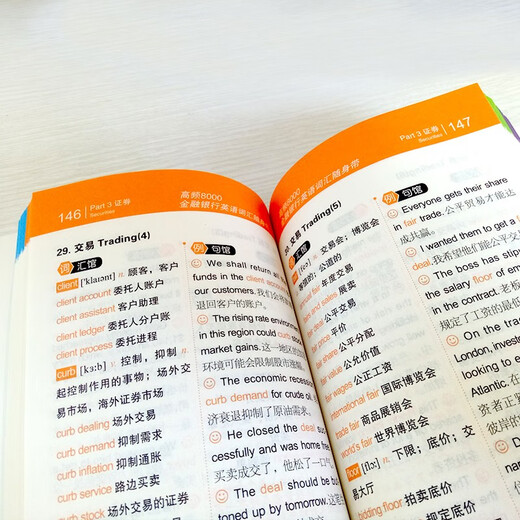 146 Part 3 证券
Securities
高频8000
金融银行英语词汇随身带
29. 交易 Trading(4)
词 汇馆
client ['klaɪənt] n. 顾客，客户
client account 委托人账户
client assistant 客户助理
client ledger 委托人分户账
client process 委托进程
curb [kɜːb] n. 控制，抑制
起控制作用的事物；场外交
易市场，海外证券市场
curb dealing 场外交易
curb demand 抑制需求
curb inflation 抑制通胀
curb service 路边买卖
curb stock 场外交易的证券
例 句馆
We shall return all
funds in the client account
our customers. 我们会将
退回客户的账户。
The rising rate environment
in this region could curb stock
market gains. 这一地区
环境可能会限制股市涨幅。
The economic recession
curb demand for crude oil.
济衰退抑制了原油需求。
He closed the deal
cessfully and was home free
买卖成交了，他松了一口气
The deal should be but
toned up by tomorrow. 这
Part 3 证券 147
Securities
高频8000
金融银行英语词汇随身带
29. 交易 Trading(5)
词 汇馆
n. 交易会；博览会
fair 年度交易
展卖
fair deal 公平交易
fair price 平价
公平分配
fair value 公允价值
fair wages 公正工资
international fair 国际博览会
trade fair 商品展销会
world's fair 世界博览会
floor [flɔː] n. 下限；底价；交
易大厅
bidding floor 拍卖底价
规定底价
例 句馆
Everyone gets their share
in fair trade. 公平贸易才能达
成共赢。
I wanted them to get a
deal. 我希望他们能公平交易
The boss has slip
the salary floor of em
in the contract. 老板
规定了工资的最低
On the tra
London, invest
looking to e
Atlantic. 在
资者正
彼岸的